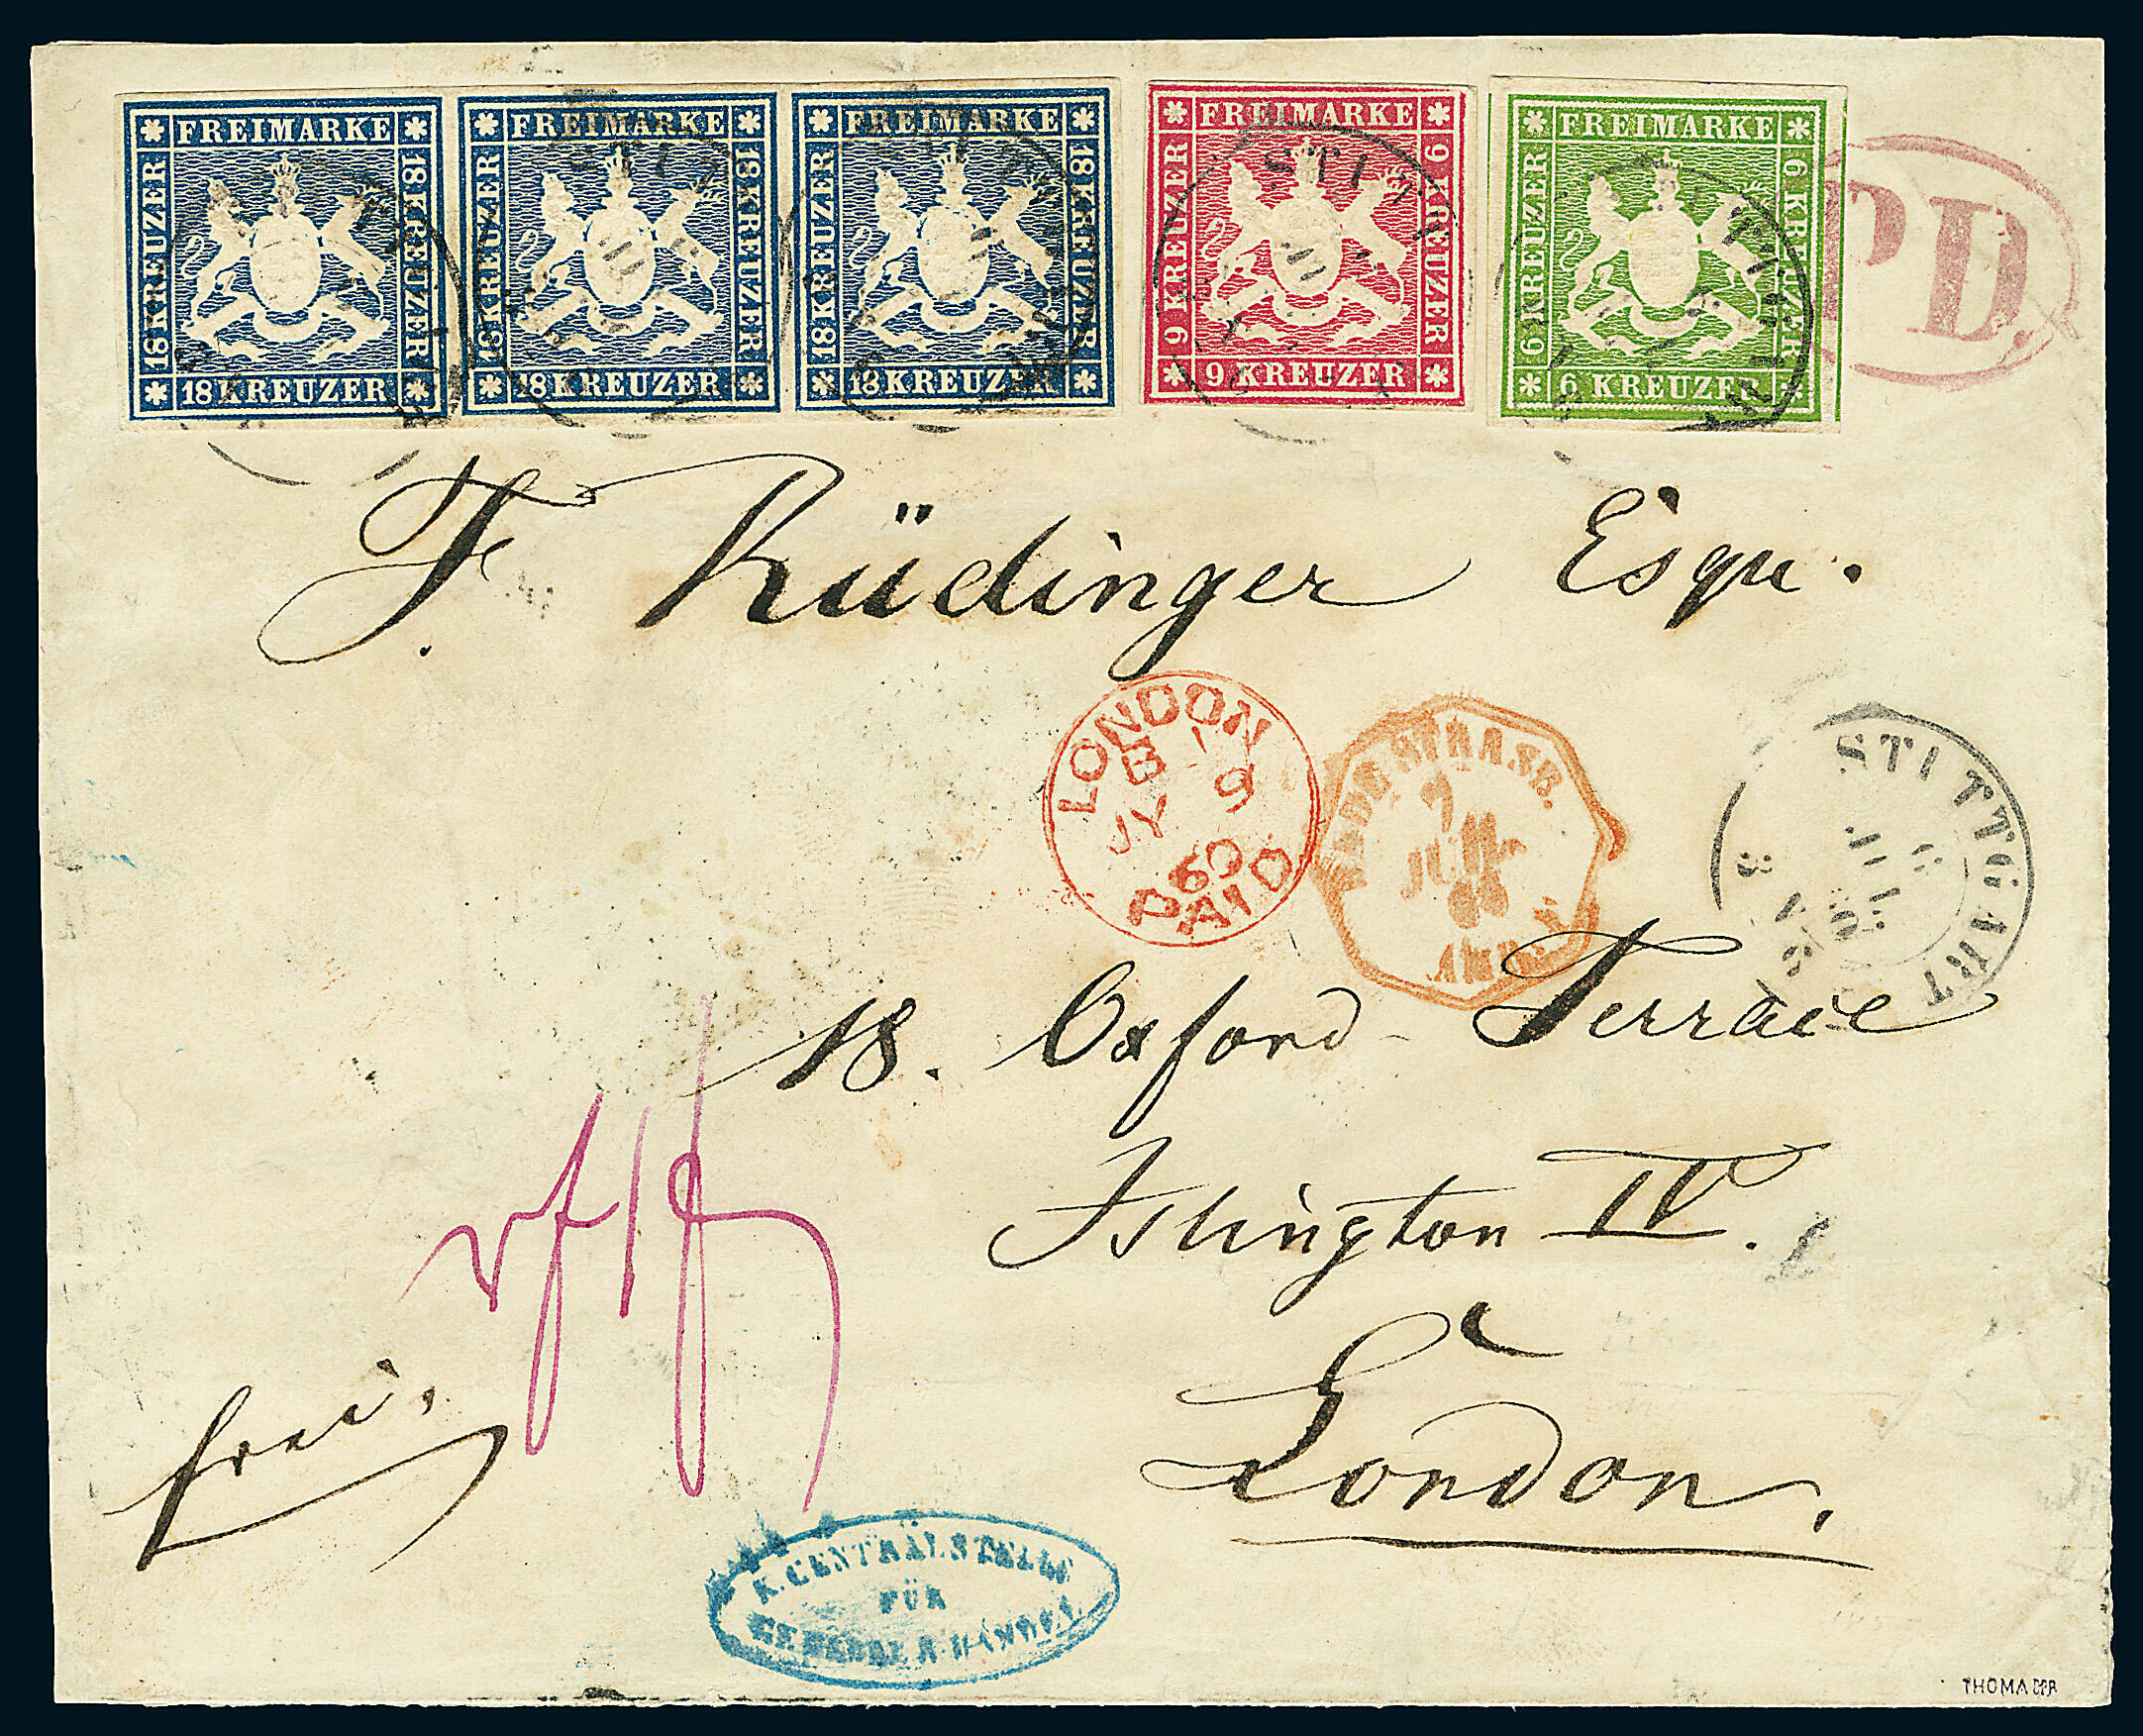 FREIMARKE 18 KREUZER 18 KREUZER 18 KREUZER
FREIMARKE 18 KREUZER 18 KREUZER 18 KREUZER
FREIMARKE 18 KREUZER 18 KREUZER 18 KREUZER
FREIMARKE 9 KREUZER 9 KREUZER 9 KREUZER
FREIMARKE 6 KREUZER 6 KREUZER 6 KREUZER
PD
F. Rüdinger Esqu.
LONDON
B 9
JY
60
PAID
7
JUL
STUTTGART
18. Oxford Terrace
Islington IV.
London.
frei.
K. CENTRALSTELLE
FÜR
GEWERBE & HANDEL
THOMA BPP